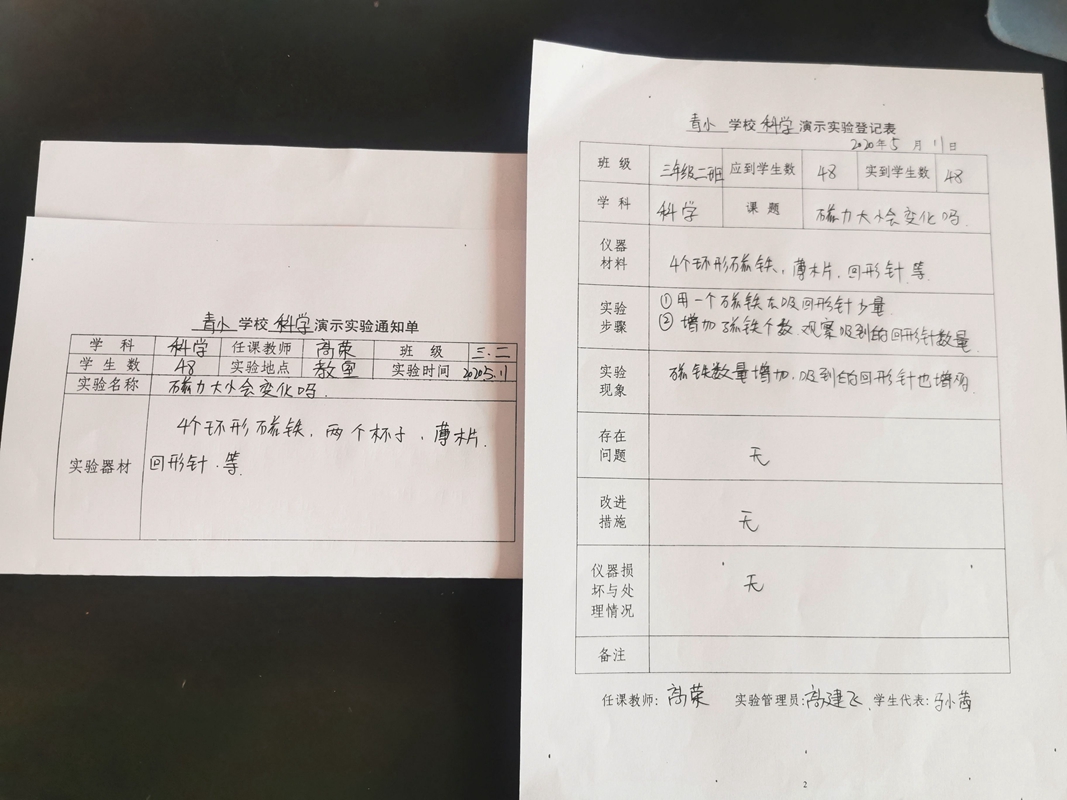 青小 学校 科学 演示实验通知单
学 科 科学 任课教师 高荣 班 级 三.二
学 生 数 48 实验地点 教室 实验时间 2020.5.11
实验名称 磁力大小会变化吗.
实验器材 4个环形磁铁, 两个杯子, 薄木片.
回形针.等.
青小 学校 科学 演示实验登记表
2020年5 月 11日
班 级 三年级二班 应到学生数 48 实到学生数 48
学 科 科学 课 题 磁力大小会变化吗.
仪器
材料
4个环形磁铁, 薄木片. 回形针.等.
实验
步骤
①用一个磁铁去吸回形针少量.
②增加磁铁个数.观察吸到的回形针数量.
实验
现象
磁铁数量增加.吸到的回形针也增多
存在
问题
无
改进
措施
无
仪器损
坏与处
理情况
无
备注
任课教师: 高荣 实验管理员:高建飞 学生代表:马小茜
2